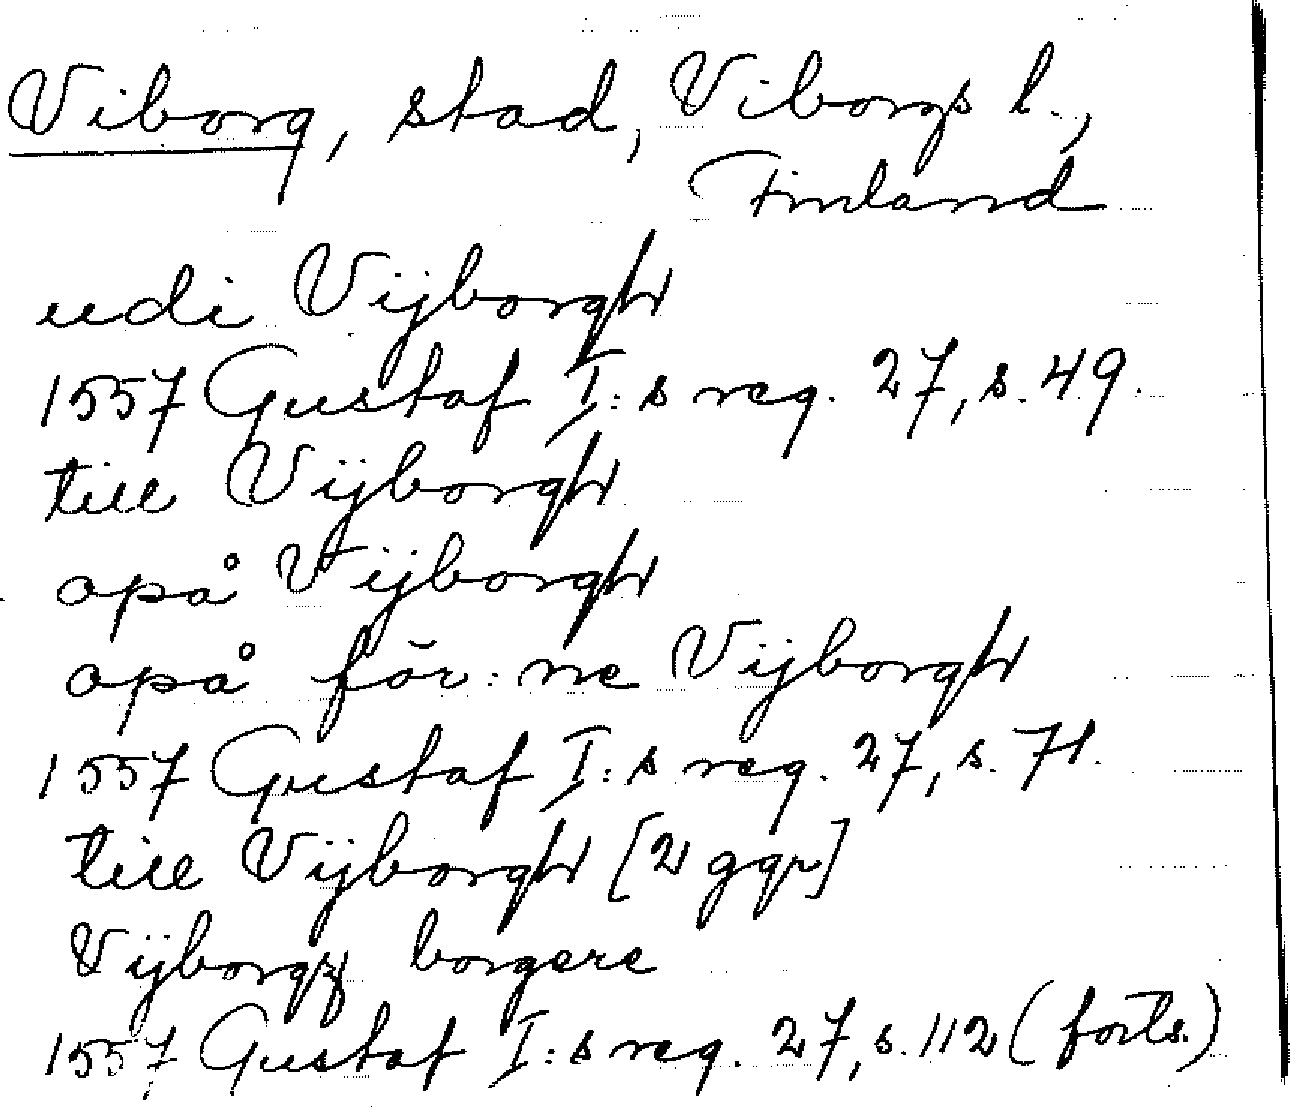 Viborg, stad, Viborgs l.,
Finland
udi Vijborgh
1557 Gustaf I:s reg. 27, s. 49.
till Vijborgh
opå Vijborgh
opå för:ne Vijborgh
1557 Gustaf I:s reg. 27, s. 71.
till Vijborgh [2 ggr]
borgere
1557 Gustaf I:s reg. 27, s. 112 (forts.)